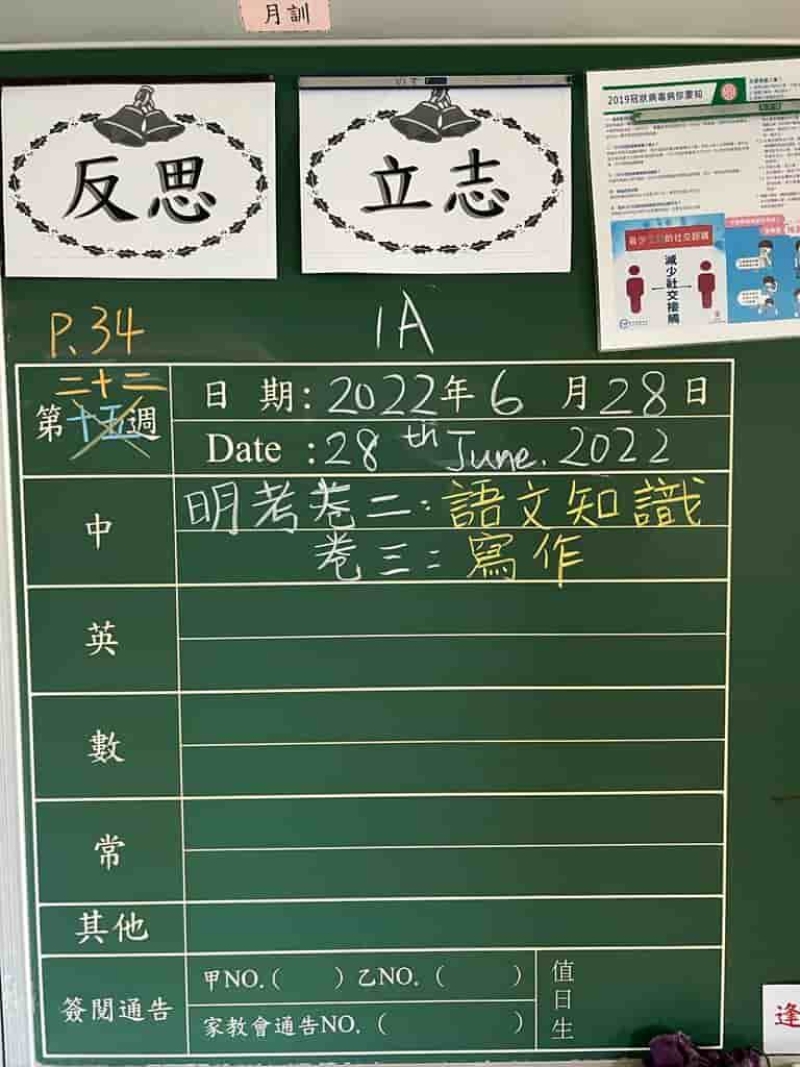 月訓
反思
立志
2019冠狀病毒病你要知
減少社交接觸
P.34
1A
二十二
第十五週
日 期：2022年6月28日
Date :28th June. 2022
中
明考卷二：語文知識
卷三：寫作
英
數
常
其他
簽閱通告
甲NO.( ) 乙NO. ( )
家教會通告NO. ( )
值日生
逢